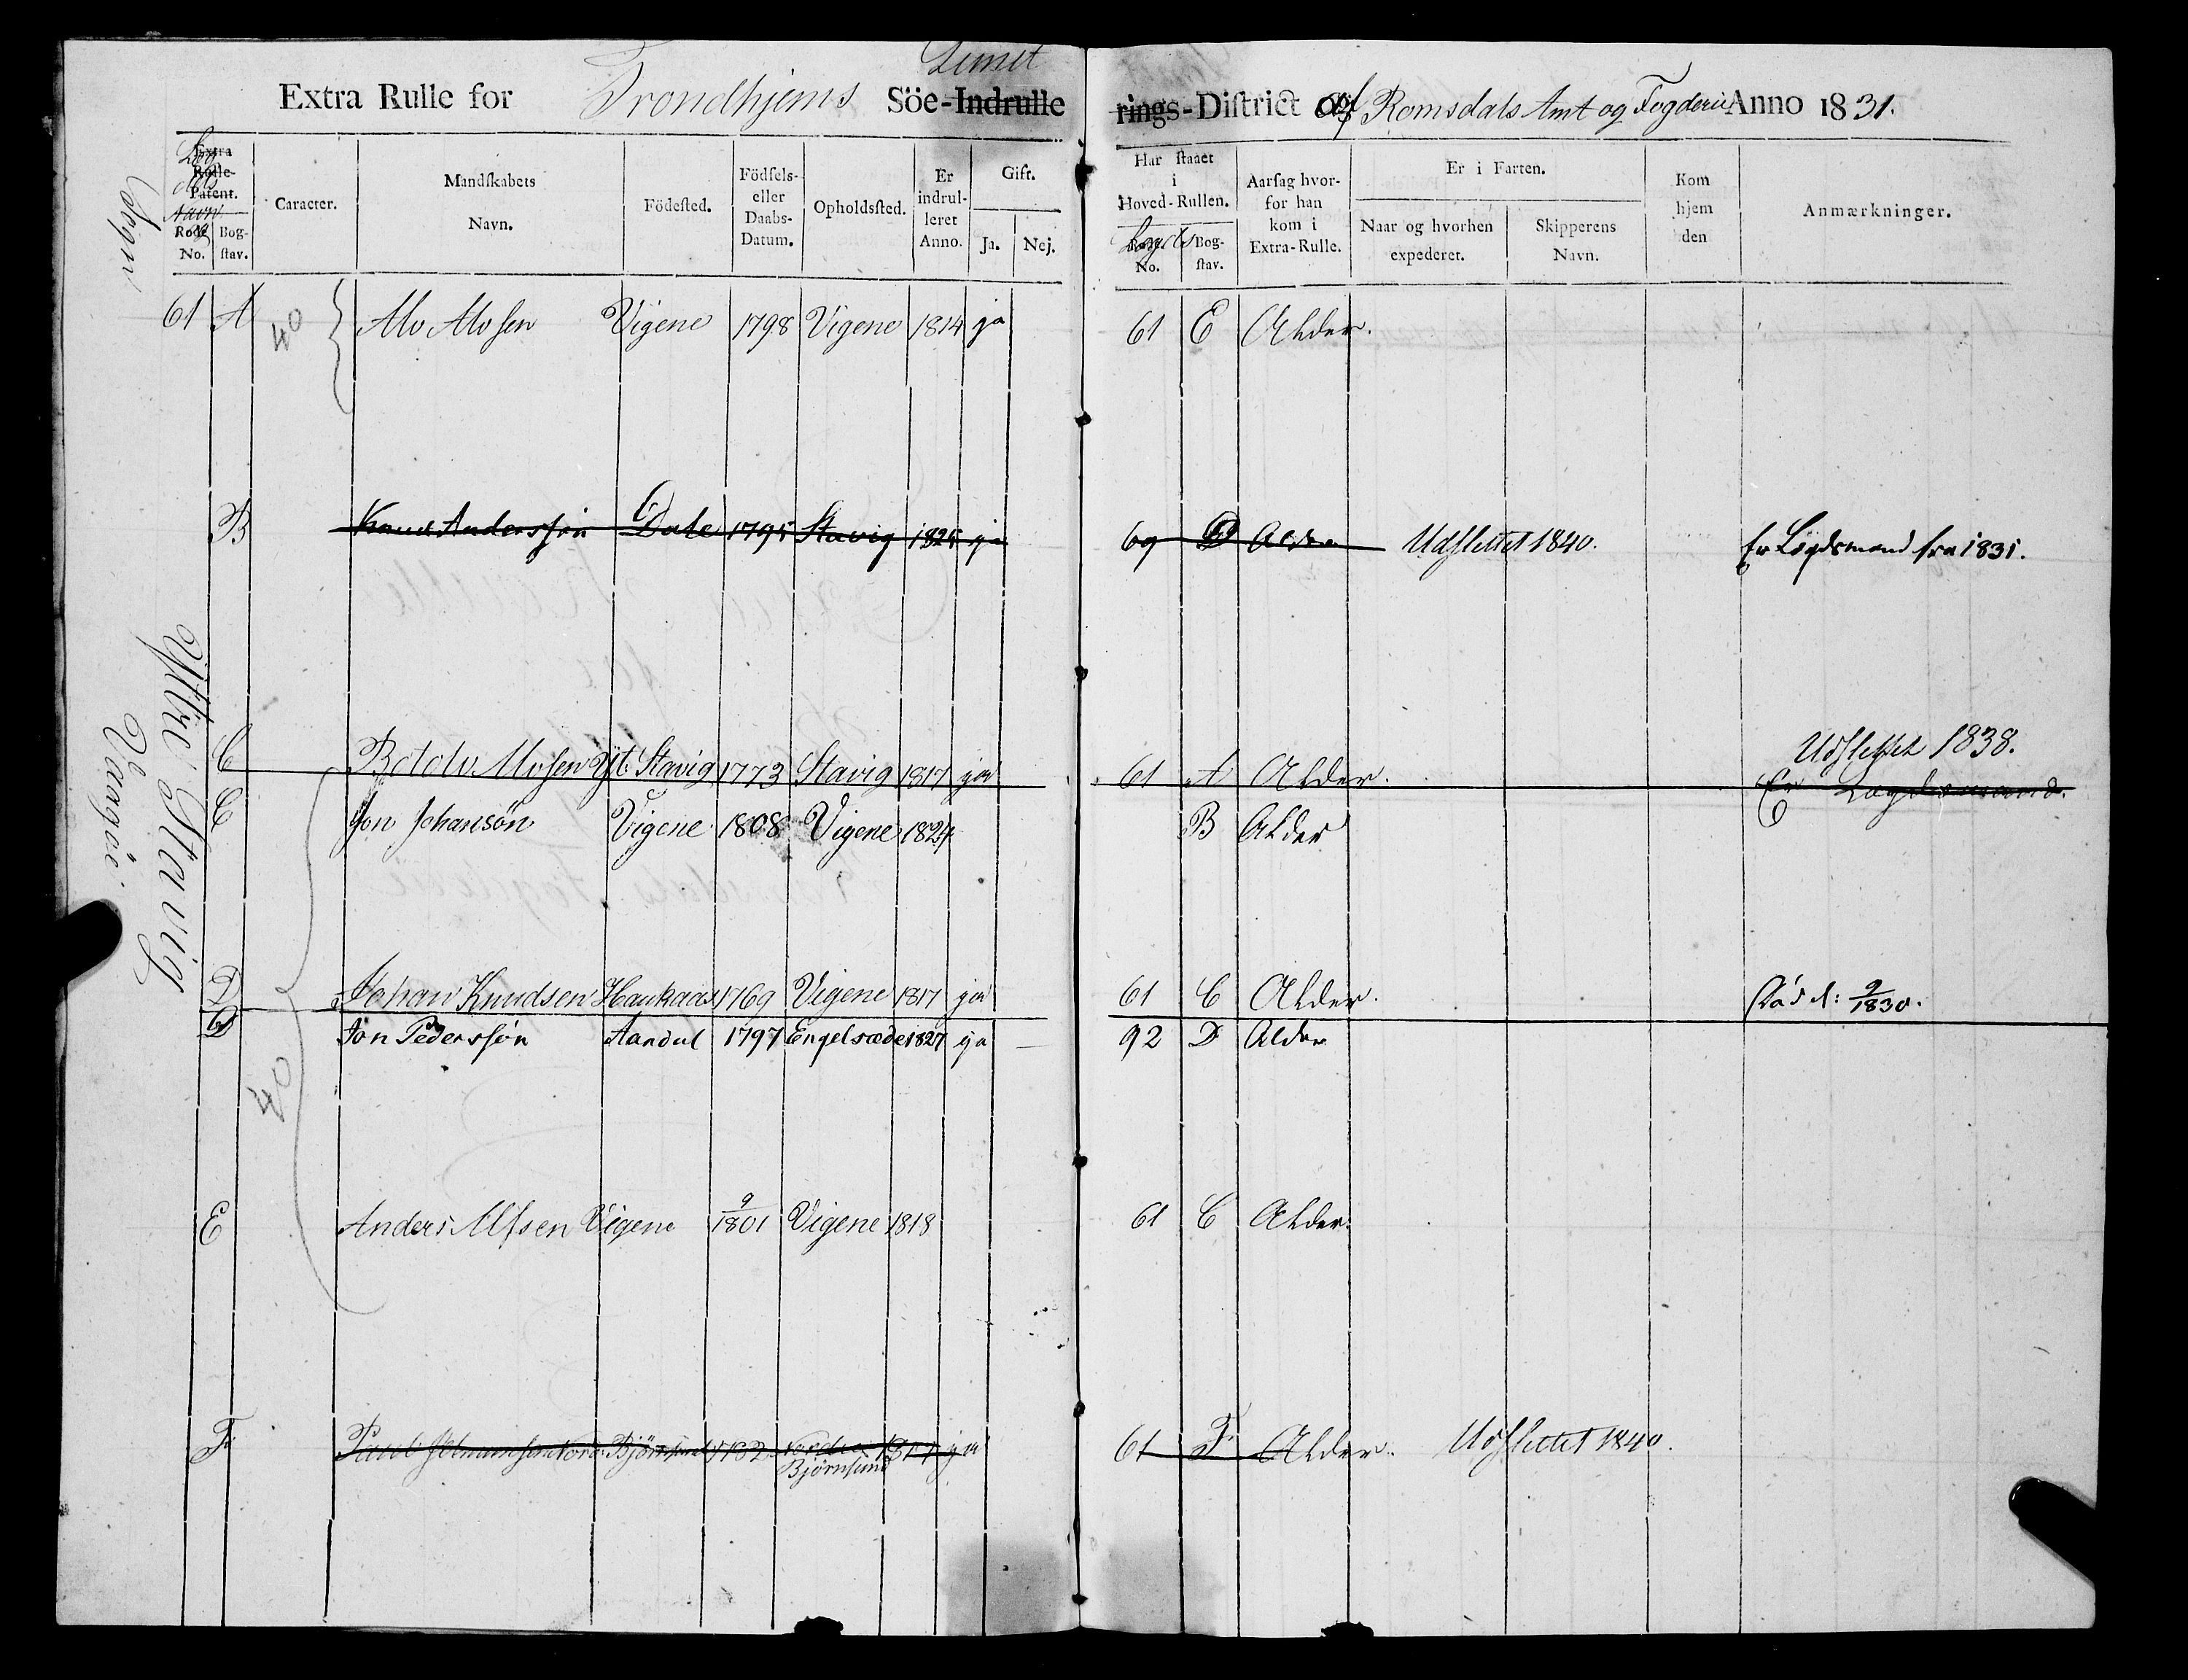 Extra Rulle for Trondhjems Söe-Indrulle Limit rings-District af Romsdals Amt og Fogderie Anno 1831.
Extra Rolle-Patent. Rode No. Bog-stav. | Caracter. | Mandskabets Navn. | Födested. | Födsels- eller Daabs-Datum. | Opholdssted. | Er indrul-leret Anno. | Gift. Ja. Nej. | Har staaet i Hoved-Rullen. Lægds No. Bog-stav. | Aarsag hvor-for han kom i Extra-Rulle. | Er i Farten. Naar og hvorhen expederet. Skipperens Navn. | Kom hjem den | Anmærkninger.
Sogn
61 A 40 Alv Alvsen Vigene 1798 Vigene 1814 ja 61 E Alder.
B Knud Anderssøn Dale 1795 Stavig 1825 ja 69 D Alder Udslettet 1840. Er Lægdsmand fra 1831.
Yttre Stavig
Vaagøe
Udslettet 1838.
C Botolv Alvsen Yt. Stavig 1773 Stavig 1817 ja 61 A Alder. Er Lægdsmand.
C Jon Johansøn Vigene 1808 Vigene 1824 B Alder
D Johan Knudsen Haukaas 1769 Vigene 1817 ja 61 C Alder. Død d: 9/1830.
D Jon Pederssøn Aandal 1797 Engelsæde 1827 ja 92 D Alder
40
E Anders Alfsen Vigene 9/1801 Vigene 1818 61 C Alder.
F Paul Nord: Björnsund 1782 Nordre Björnsund 1817 ja 61 F. Alder. Udslettet 1840.